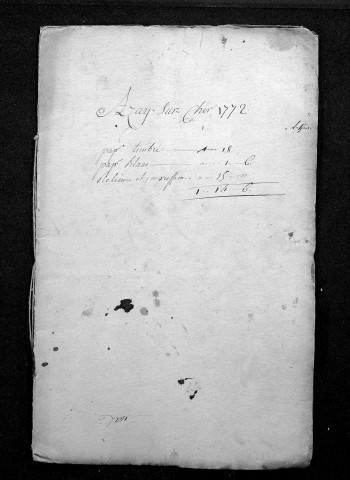 Azay sur Cher 1772
pap.r timbre 18
pap.r blanc 1 6
Relieure et 15
1 14 6